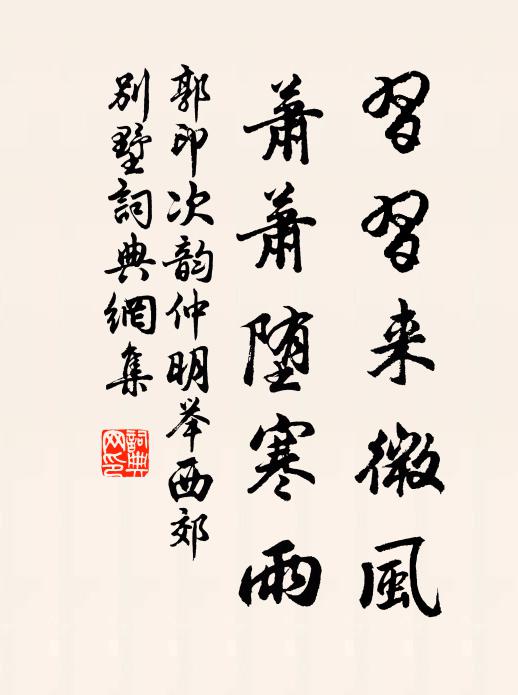 習習来微風
蕭蕭堕寒雨
郭印次韵仲明举西郊
别墅詞典網集
詞典网印